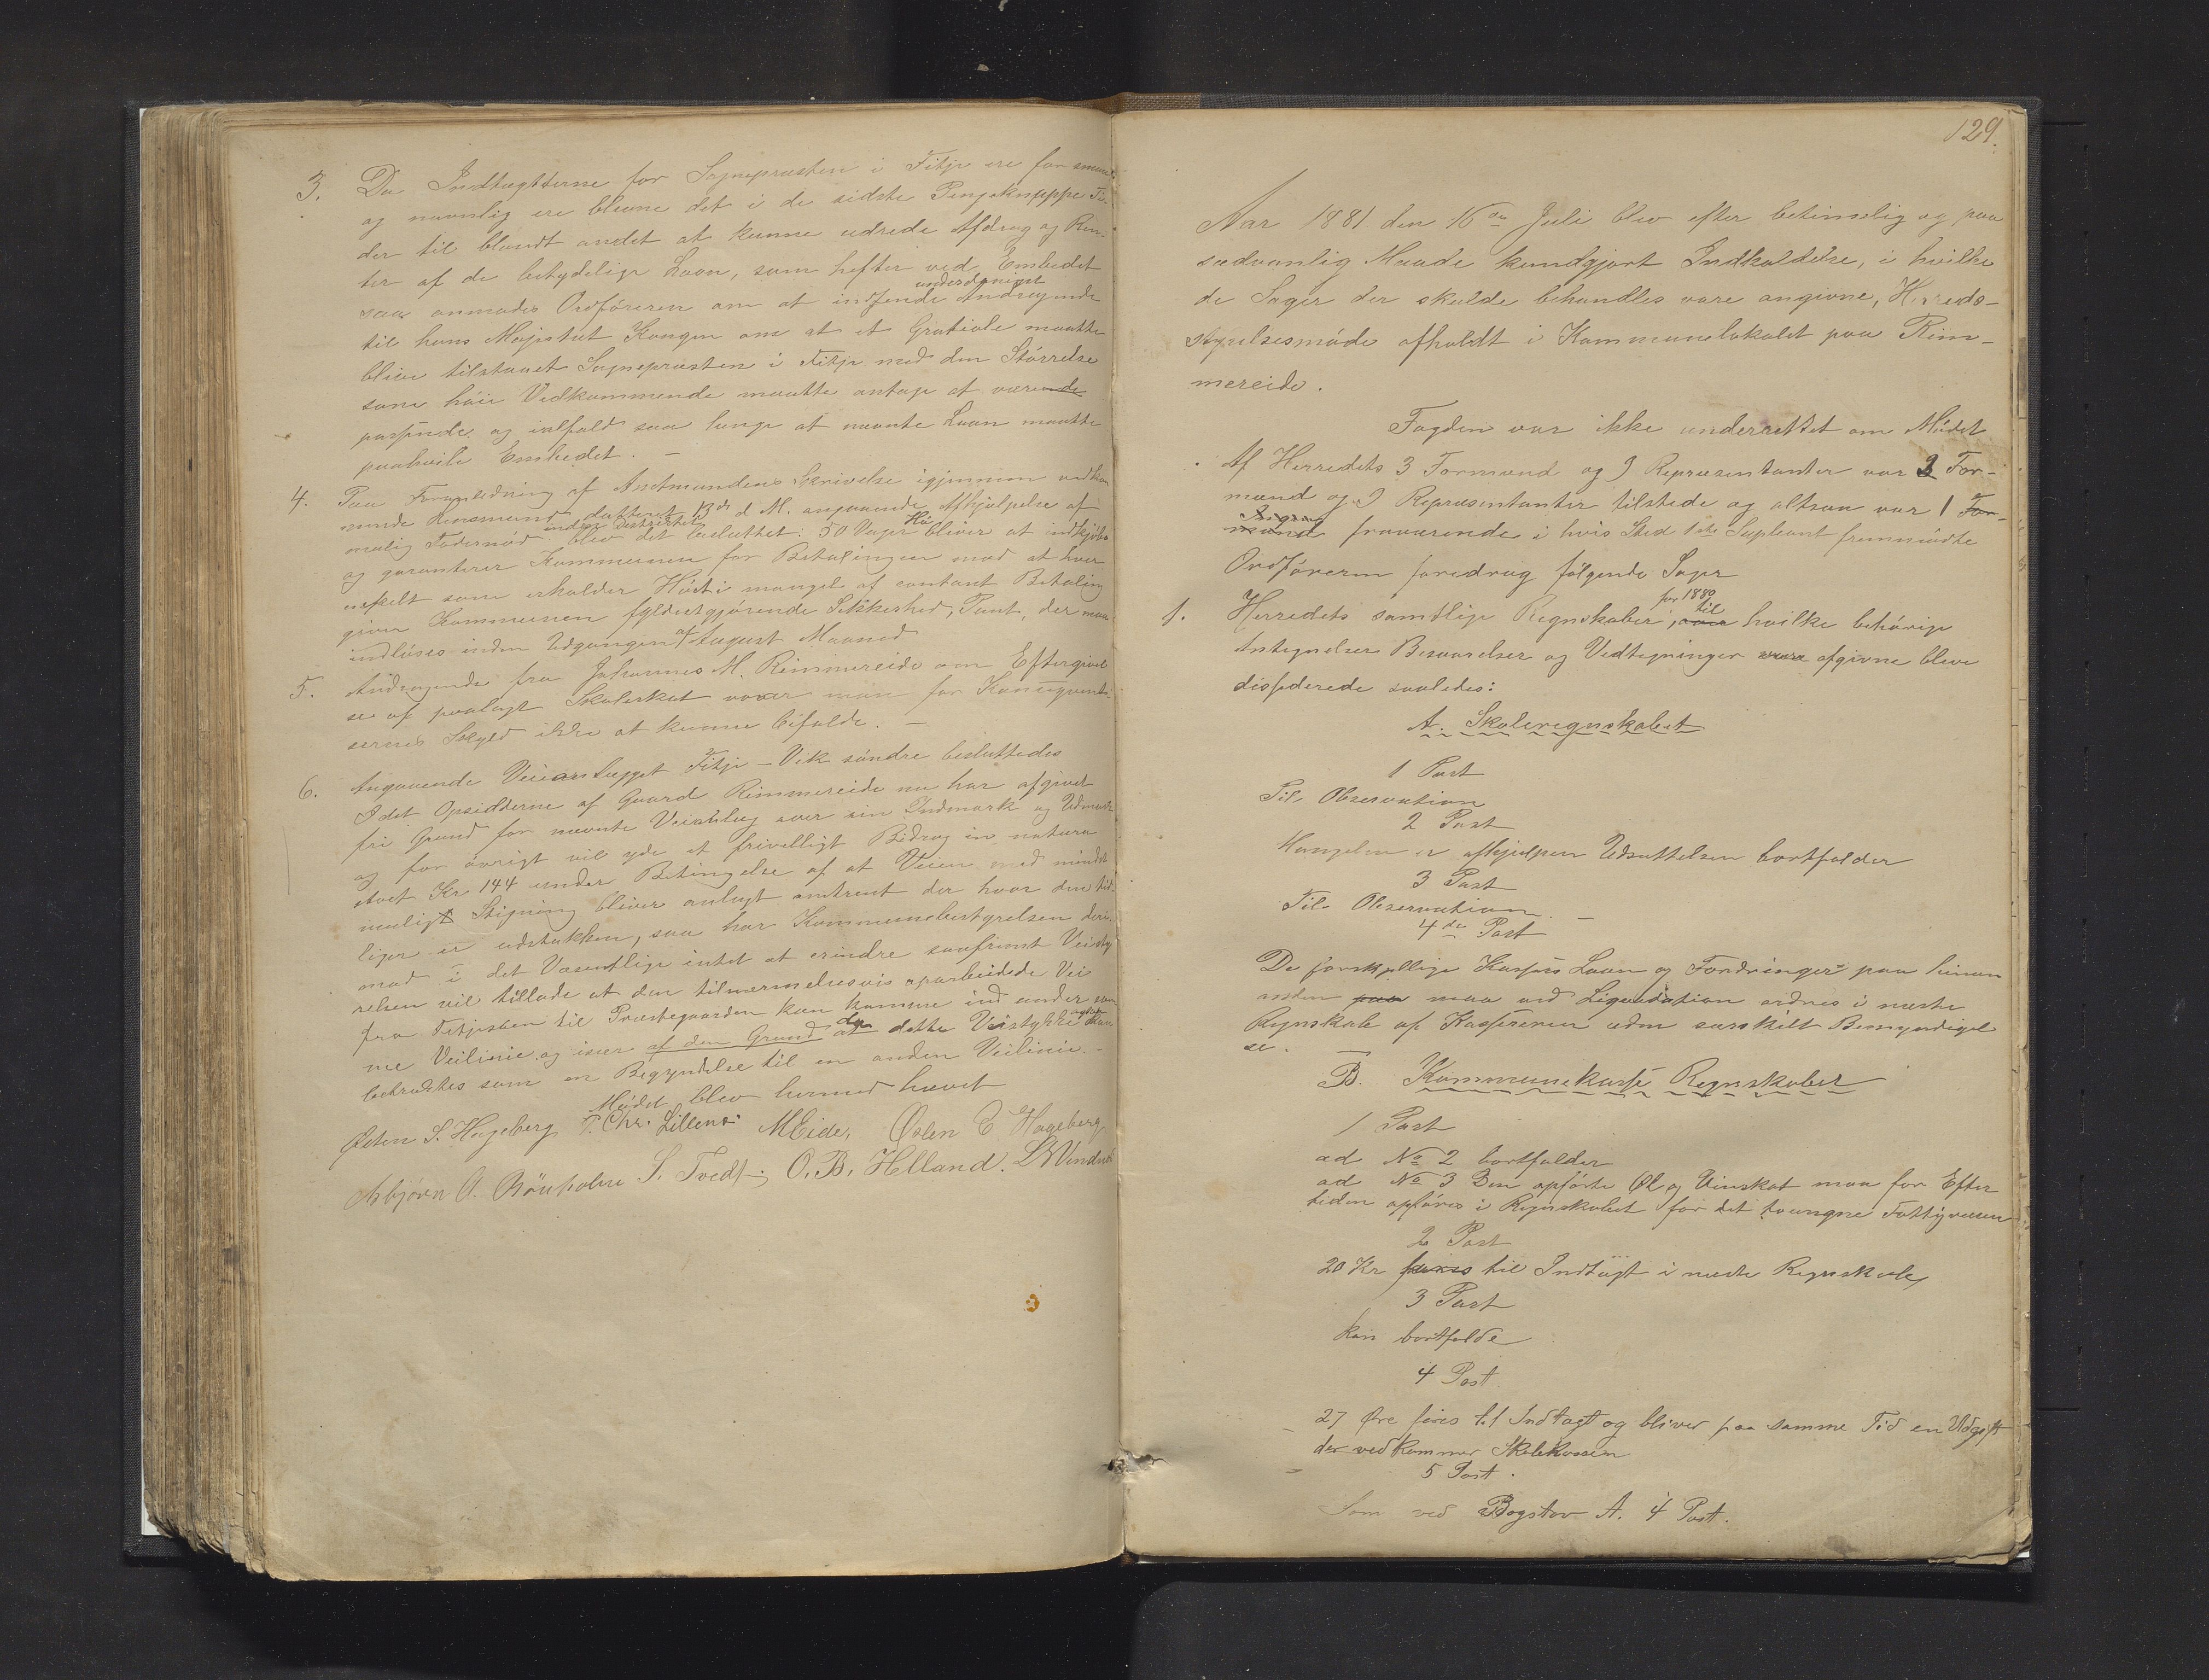 3. Da Indtægtterne for Sognepræsten i Fitje ere for smaa
og navnlig ere blevne det i de sidste Pengeknappe Ti-
der til blandt andet at kunne udrede Afdrag og Ren-
ter af de betydelige Laan, som hefter ved Embedet
underdanigst
saa anmodes Ordføreren om at indsende Andragende
til hans Majestæt Kongen om at et Gratiale maatte
blive tilstaaet Sognepræsten i Fitje med den Størrelse
som høie Vedkommende maatte antage at være
passende og ialfald saa lenge at nævnte Laan maatte
paahvile Embedet. –
4. Paa Foranledning af Amtmandens Skrivelse igjennem vedkom
mende Lensmand datteret 13de d. M. angaaende Afhjælpelse af
inden Distriktet
mulig Fodernød blev det besluttet: 50 Voger Hø bliver at indkjøbe
og garanterer Kommunen for Betalingen mod at hver
enkelt som erholder Høet i mangel af contant Betaling
giver Kommunen fyldestgjørende Sikkerhed, Pant, der maa
indløses inden Udgangen af August Maaned
5. Andragende fra Johannes M. Rimmereide om Eftergivel
se af paalagt Skoleskat man for Konseqvent-
sernes Skyld ikke at kunne bifalde. –
6. Angaaende Veianlægget Fitje – Vik søndre besluttedes
Idet Opsidderne af Gaard Rimmereide nu har afgivet
fri Grund for nævnte Veianlæg over sin Indmark og Udmark
og for øvrigt vil yde et frivelligt Bidrag in natura
stort Kr 144 under Betingelse af at Veien med mindst
muligt Stigning bliver anlagt omtrent der hvor den tid-
ligere er udstukken, saa har Kommunebestyrelsen deri-
mod i det Væsentlige intet at erindre saafremt Veisty
relsen vil tillade at den tilnærmelsesvis oparbeidede Vei
fra Fitjesøen til Præstegaarden kan komme ind under sam
me Veilinie og især af den Grund da dette Veistykke
betragtes som en Begyndelse til en anden Veilinie. –
Mødet blev hermed hævet
Østen S. Hageberg P. Chr. Lillenes M Eide, Østen E Hageberg
Asbjørn O. Rønholm S. Tvedt. O. B. Helland.
129.
Aar 1881 den 16de Juli blev efter betimelig og paa
sædvanlig Maade kundgjort Indkaldelse, i hvilke
de Sager der skulde behandles vare angivne, Herreds-
styrelsesmøde afholdt i Kommunelokalet paa Rim-
mereide.
Fogden var ikke underrettet om Mødet
Af Herredets 3 Formænd og 9 Repræsentanter var 3 For-
mænd og 9 Repræsentanter tilstede og altsaa var 1 For-
Ingen
mand fraværende i hvis Sted 1ste Supleant fremmødte
Ordføreren foredrog følgende Sager
for 1880
til
1. Herredets samtlige Regnskaber, hvilke behørige
Antegnelser Besvarelser og Vedtegninger vare afgivne bleve
dissiderede saaledes:
A. Skoleregnskabet
1 Post
Til Observation
2 Post
Mangelen er afhjulpen Udsættelsen bortfalder
3 Post
Til Observation. –
4de Post
De forskjellige Kassers Laan og Fordringer paa hinan
anden paa maa ved Liqvidation ordnes i næste
Regnskab af Kassereren uden særskilt Bemyndigel
se.
B. Kommunekasse Regnskabet
1 Post
ad No 2 bortfalder
ad No 3 Den opførte Øl og Vinskat maa for Efter
tiden opføres i Regnskabet for det tvungne Fattigvæsen
2 Post
20 Kr føres til Indtægt i næste Regnskab
3 Post
kan bortfalde
4 Post
27 Øre føres til Indtægt og bliver paa samme Tid en Udgift
der vedkommer Skolekassen
5 Post.
Som ved Bogstav A. 4 Post.